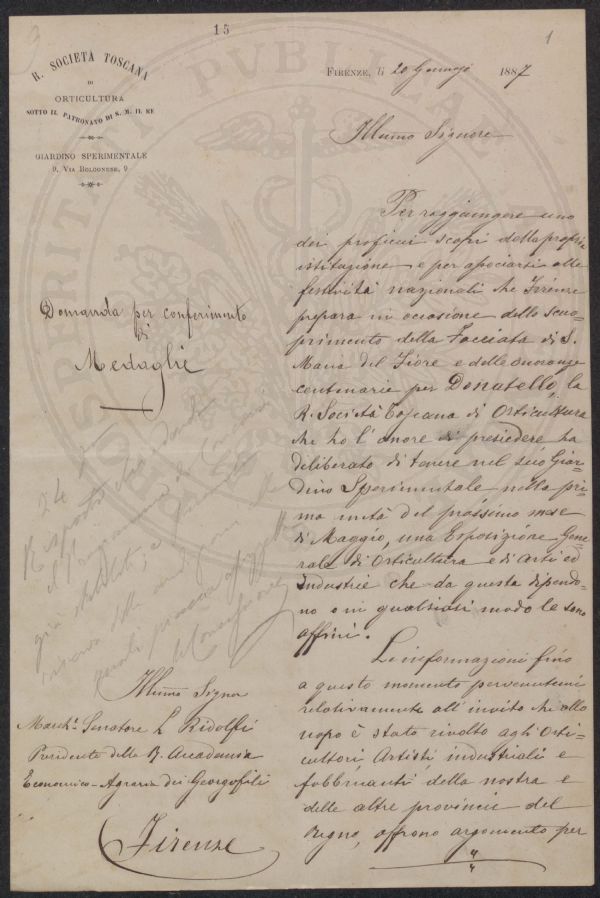 15
1
R. SOCIETÀ TOSCANA
DI
ORTICULTURA
SOTTO IL PATRONATO DI S. M. IL RE
GIARDINO SPERIMENTALE
9, VIA BOLOGNESE, 9
FIRENZE, li 20 Gennajo 1887
Illumo Signore
Domanda per conferimento
di
Medaglie
Per raggiungere uno
dei proficui scopi della propria
istituzione e per associarsi alle
festività nazionali che Firenze
prepara in occasione dello scuo-
primento della Facciata di S.
Maria del Fiore e delle onoranze
centenarie per Donatello, la
R. Società Toscana di Orticultura
che ho l'onore di presiedere ha
deliberato di tenere nel suo Giar-
dino Sperimentale nella pri-
ma metà del prossimo mese
di Maggio, una Esposizione Gene-
rale di Orticultura e di Arti ed
Industrie che da questa dipendo-
no o in qualsiasi modo le sono
affini.
Le informazioni fino
a questo momento pervenutemi
relativamente all'invito che allo
uopo è stato rivolto agli Orti-
cultori, Artisti, industriali e
fabbricanti della nostra e
delle altre provincie del
Regno, offrono argomento per
24
Risposto che
il programma
già
Illumo Signor
March. Senatore L. Ridolfi
Presidente della R. Accademia
Economico-Agraria dei Georgofili
Firenze